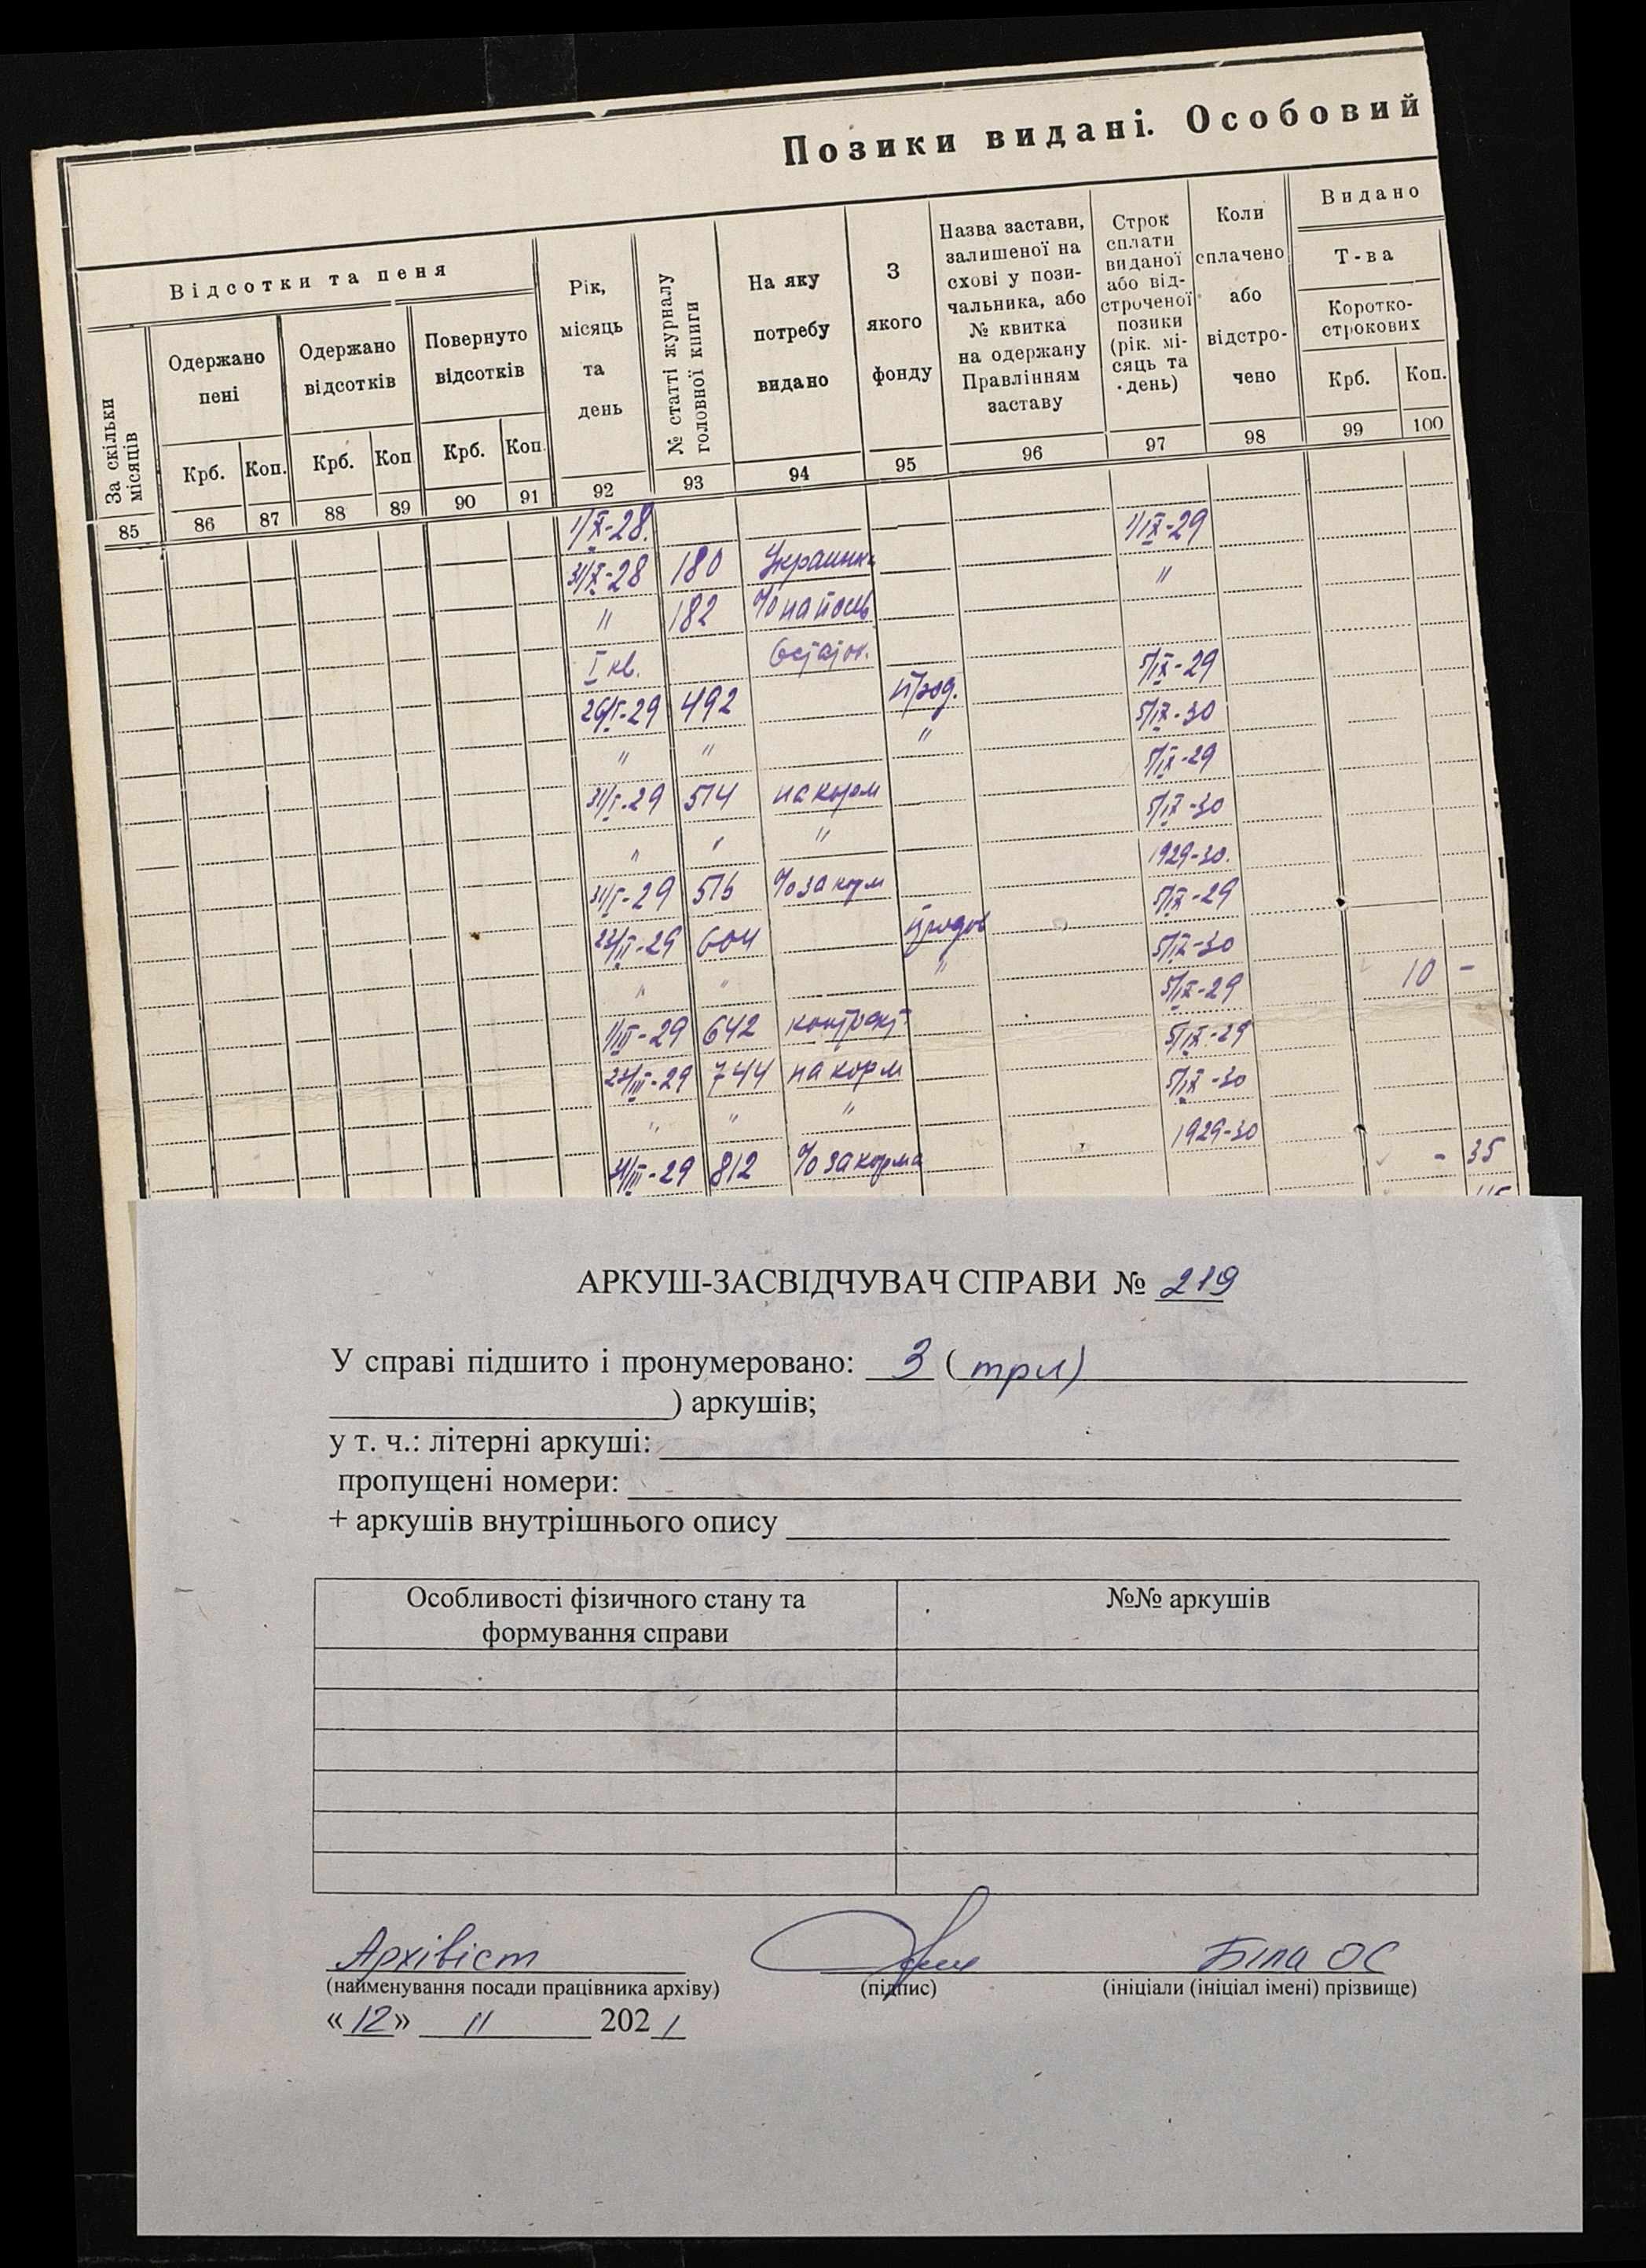 Позики видані. Особовий
Відсотки та пеня
За скільки місяців
Одержано пені
Одержано відсотків
Повернуто відсотків
Рік, місяць та день
№ статті журналу головної книги
На яку потребу видано
З якого фонду
Назва застави, залишеної на схові у пози-чальника, або № квитка на одержану Правлінням заставу
Строк сплати виданої або від-строченої позики (рік. мі-сяць та день)
Коли сплачено або відстро-чено
Видано
Т-ва
Коротко-строкових
Крб. Коп. Крб. Коп Крб. Коп. Крб. Коп.
85 86 87 88 89 90 91 92 93 94 95 96 97 98 99 100
1/X-28. 1/IX-29
31/X-28 180 "
" 182 % на
I кв. Остаток. 5/IX-29
26/I-29 492 5/IX-30
" " " 5/IX-29
31/I-29 514 на корм 5/IX-30
" " " 1929-30.
31/I-29 515 % за корм 5/IX-29
23/II-29 604 5/IX-30
" " " 5/IX-29 10 -
1/III-29 642 контракт. 5/IX-29
23/III-29 744 на корм 5/IX-30
" " " 1929-30
31/III-29 812 % за корма - 35
АРКУШ-ЗАСВІДЧУВАЧ СПРАВИ № 219
У справі підшито і пронумеровано: 3 (три)
) аркушів;
у т. ч.: літерні аркуші:
пропущені номери:
+ аркушів внутрішнього опису
Особливості фізичного стану та формування справи
№№ аркушів
Архівіст Біла ОС
(найменування посади працівника архіву) (підпис) (ініціали (ініціал імені) прізвище)
«12» 11 2021